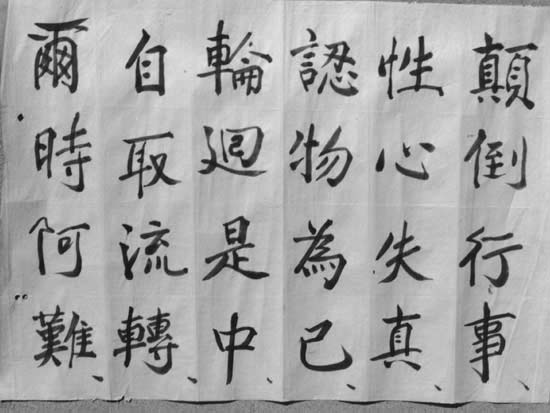 顛倒行事、
性心失真、
認物為己、
輪迴是中、
自取流轉、
爾時阿難、